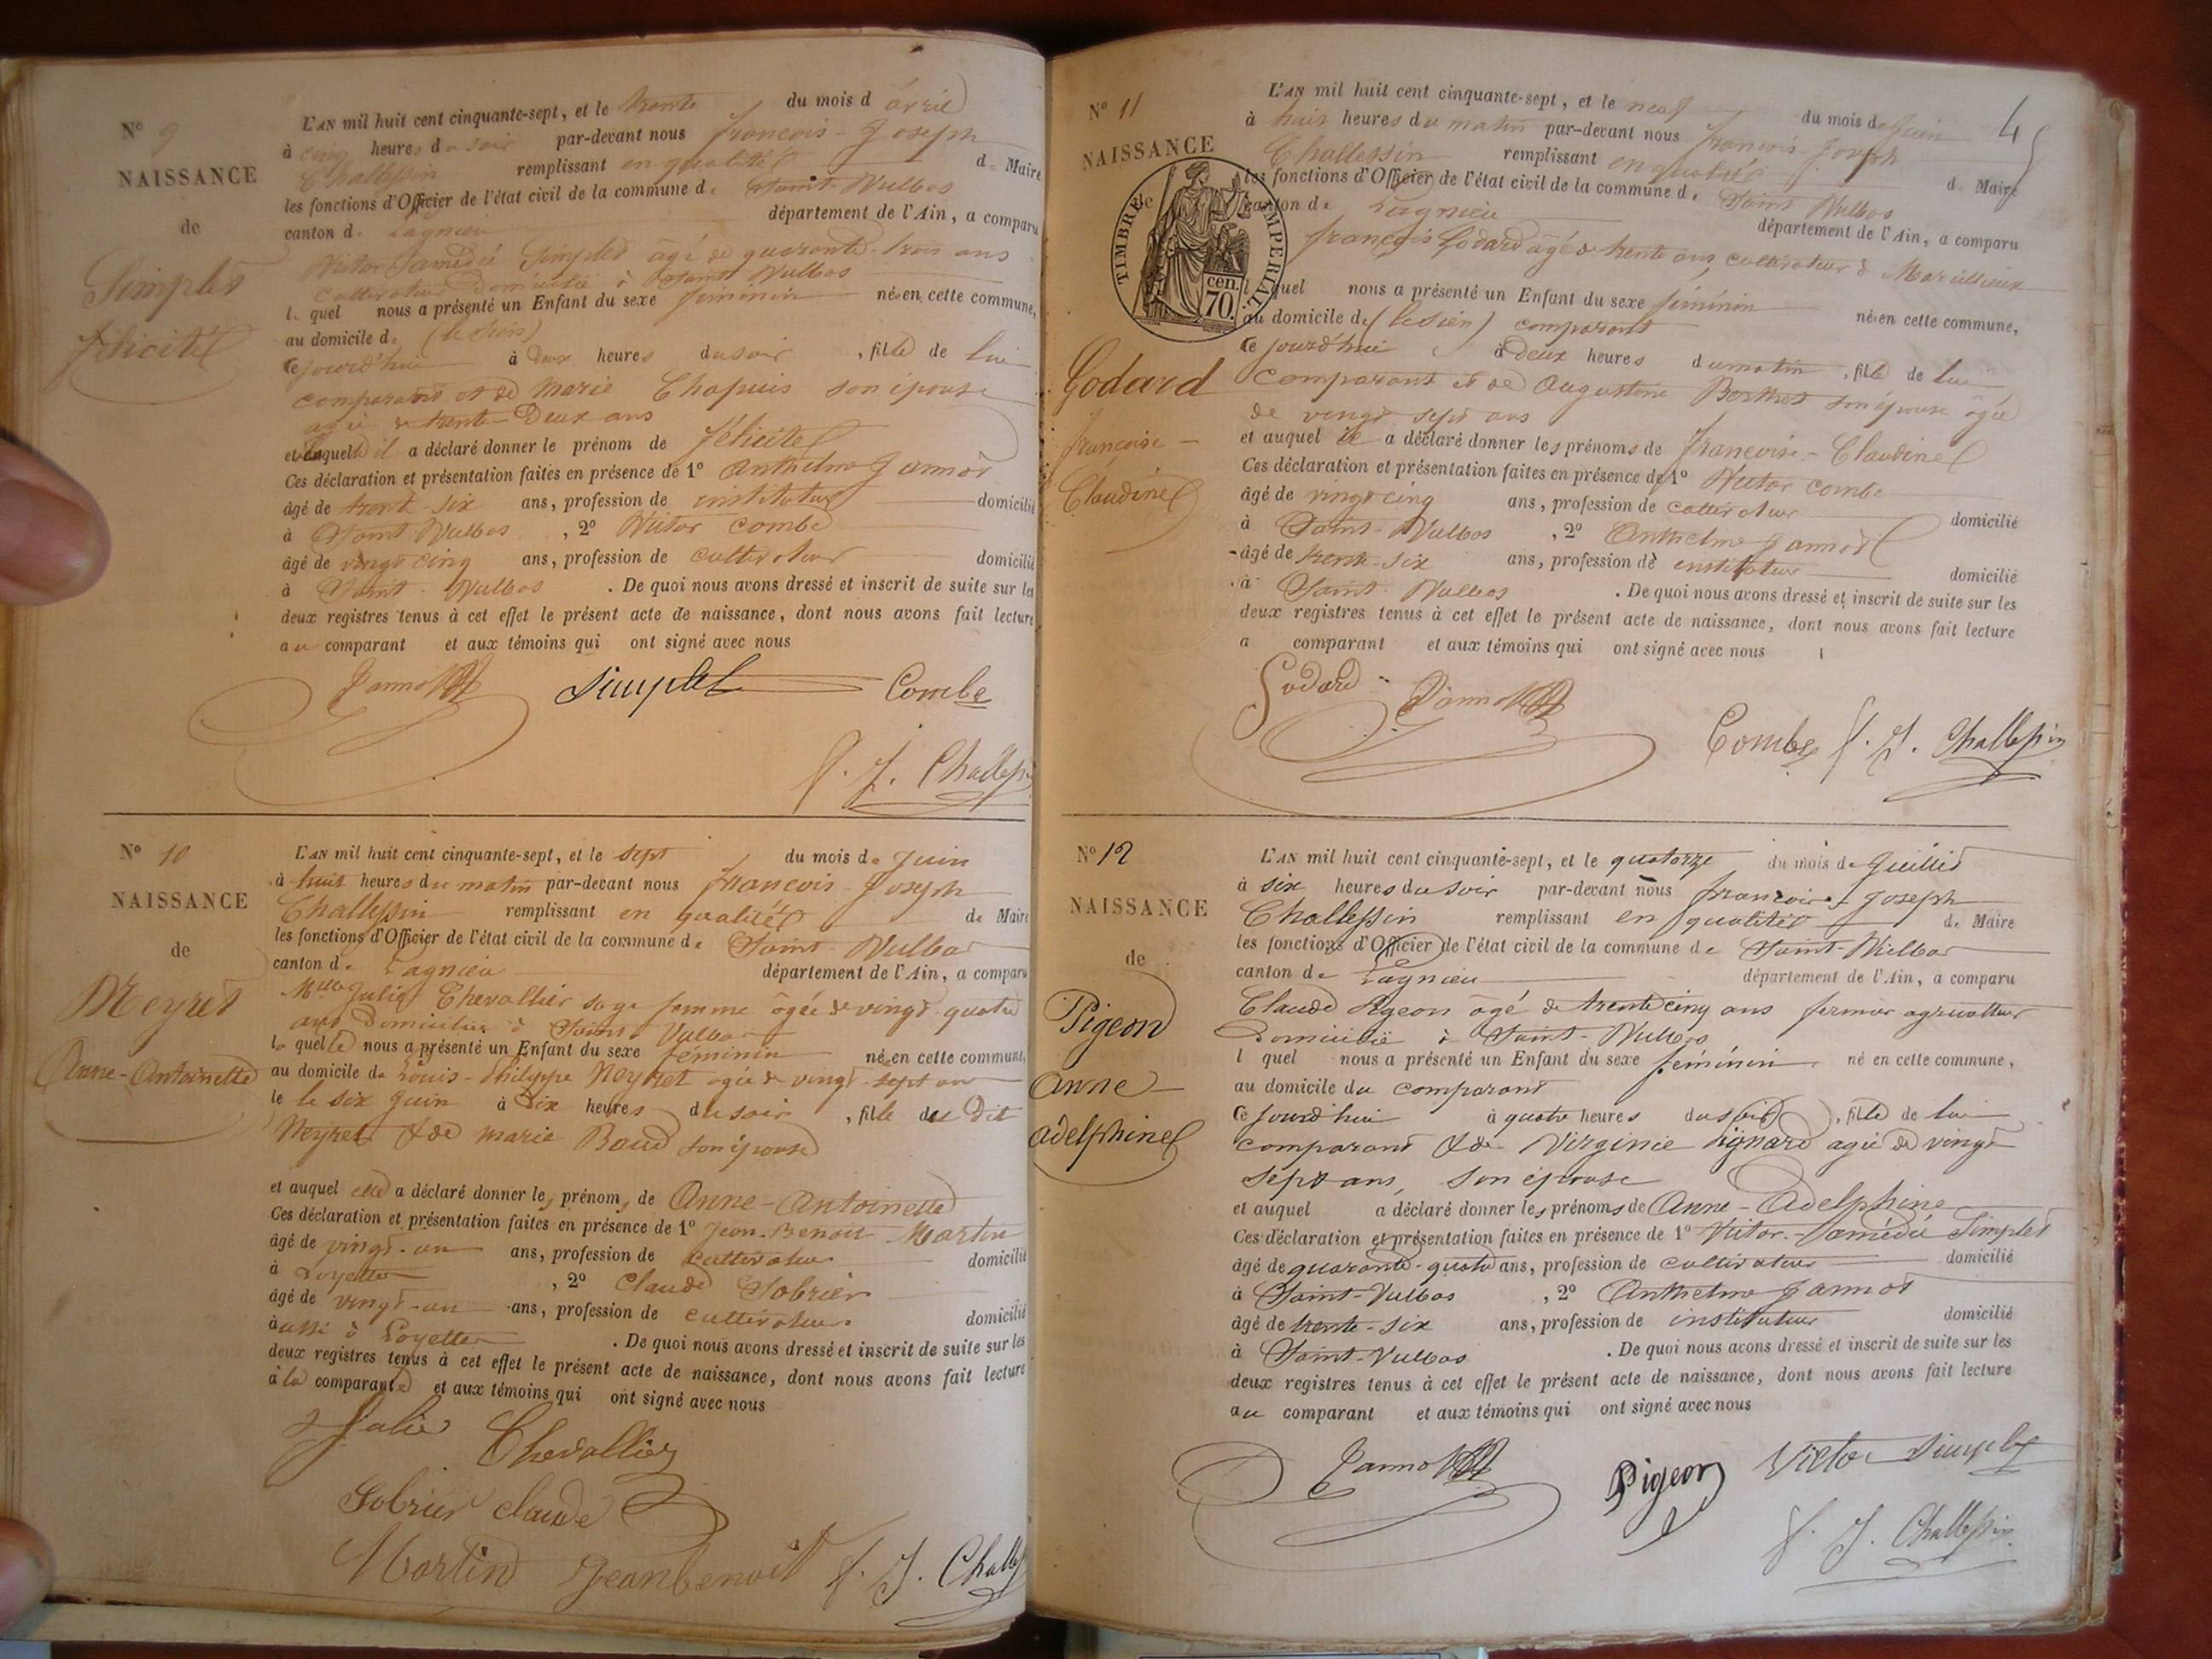 N° 9
NAISSANCE
de
Simplet
félicité
L'AN mil huit cent cinquante-sept, et le trente du mois d avril
à cinq heures du soir par-devant nous françois-Joseph
Challessin remplissant en qualité de Maire
les fonctions d'Officier de l'état civil de la commune de Saint-Vulbas
canton de Lagnieu département de l'Ain, a comparu
Victor amédé Simplet âgé de quarante-trois ans
cultivateur domicilié à Saint Vulbas
lequel nous a présenté un Enfant du sexe féminin née en cette commune,
au domicile de (le sien)
Ce jourd'hui à deux heures du soir, fille de lui
comparant et de Marie Chapuis son épouse
agée de trente Deux ans
et auquel il a déclaré donner le prénom de félicité
Ces déclaration et présentation faites en présence de 1° Anthelme Jannot
âgé de trent-six ans, profession de instituteur domicilié
à Saint Vulbas, 2° Victor Combe
âgé de vingt cinq ans, profession de cultivateur domicilié
à Saint-Vulbas. De quoi nous avons dressé et inscrit de suite sur les
deux registres tenus à cet effet le présent acte de naissance, dont nous avons fait lecture
au comparant et aux témoins qui ont signé avec nous
Jannot Simplet Combe
f. J. Challessin
N° 10
NAISSANCE
de
Neyret
Anne-Antoinette
L'AN mil huit cent cinquante-sept, et le sept du mois de Juin
à huit heures du matin par-devant nous françois-Joseph
Challessin remplissant en qualité de Maire
les fonctions d'Officier de l'état civil de la commune de Saint-Vulbas
canton de Lagnieu département de l'Ain, a comparu
Mlle Julie Chevallier sage femme âgée de vingt-quatre
ans domiciliée à Saint Vulbas
laquelle nous a présenté un Enfant du sexe féminin née en cette commune,
au domicile de Louis-Philippe Neyret agée de vingt-sept ans
le le six Juin à Dix heures du soir, fille des dit
Neyret & de marie Baud son épouse
et auquel elle a déclaré donner les prénoms de Anne-Antoinette
Ces déclaration et présentation faites en présence de 1° Jean-Benoit Martin
âgé de vingt-un ans, profession de cultivateur domicilié
à Loyettes, 2° Claude Sobrier
âgé de vingt-un ans, profession de cultivateur domicilié
à aussi à Loyettes. De quoi nous avons dressé et inscrit de suite sur les
deux registres tenus à cet effet le présent acte de naissance, dont nous avons fait lecture
à la comparante et aux témoins qui ont signé avec nous
Julie Chevallier
Sobrier claude
Martin Jeanbenoit f. J. Chall
N° 11
4
NAISSANCE
de
TIMBRE IMPERIAL
70 cen.
Godard
françoise-
Claudine
L'AN mil huit cent cinquante-sept, et le neuf du mois de Juin
à huit heures du matin par-devant nous françois-Joseph
Challessin remplissant en qualité de Maire
les fonctions d'Officier de l'état civil de la commune de Saint Vulbas
canton de Lagnieu département de l'Ain, a comparu
françois Godard âgé de trente ans, cultivateur à Marillieux
lequel nous a présenté un Enfant du sexe féminin née en cette commune,
au domicile de (le sien) comparant
Ce jourd'hui à deux heures du matin, fille de lui
comparant et de Augustine Berthet son épouse âgée
de vingt sept ans
et auquel il a déclaré donner les prénoms de françoise-Claudine
Ces déclaration et présentation faites en présence de 1° Victor Combe
âgé de vingt cinq ans, profession de cultivateur domicilié
à Saint-Vulbas, 2° Anthelme Jannot
âgé de trente-six ans, profession de instituteur domicilié
à Saint-Vulbas. De quoi nous avons dressé et inscrit de suite sur les
deux registres tenus à cet effet le présent acte de naissance, dont nous avons fait lecture
a comparant et aux témoins qui ont signé avec nous
Godard Jannot
Combe f. J. Challessin
N° 12
NAISSANCE
de
Pigeon
anne
adelphine
L'AN mil huit cent cinquante-sept, et le quatorze du mois de Juillet
à six heures du soir par-devant nous françois-Joseph
Challessin remplissant en qualité de Maire
les fonctions d'Officier de l'état civil de la commune de Saint-Vulbas
canton de Lagnieu département de l'Ain, a comparu
Claude Pigeon âgé de trente cinq ans fermier agriculteur
Domicilié à Saint-Vulbas
l quel nous a présenté un Enfant du sexe féminin né en cette commune,
au domicile du comparant
Ce jourd'hui à quatre heures du soir, fille de lui
comparant & de Virginie Lignard agée de vingt
sept ans, son épouse
et auquel a déclaré donner les prénoms de Anne-Adelphine
Ces déclaration et présentation faites en présence de 1° Victor-amédé Simplet
âgé de quarante-quatre ans, profession de cultivateur domicilié
à Saint-Vulbas, 2° Anthelme Jannot
âgé de trente-six ans, profession de instituteur domicilié
à Saint-Vulbas. De quoi nous avons dressé et inscrit de suite sur les
deux registres tenus à cet effet le présent acte de naissance, dont nous avons fait lecture
au comparant et aux témoins qui ont signé avec nous
Jannot Pigeon Victor Simplet
f. J. Challessin